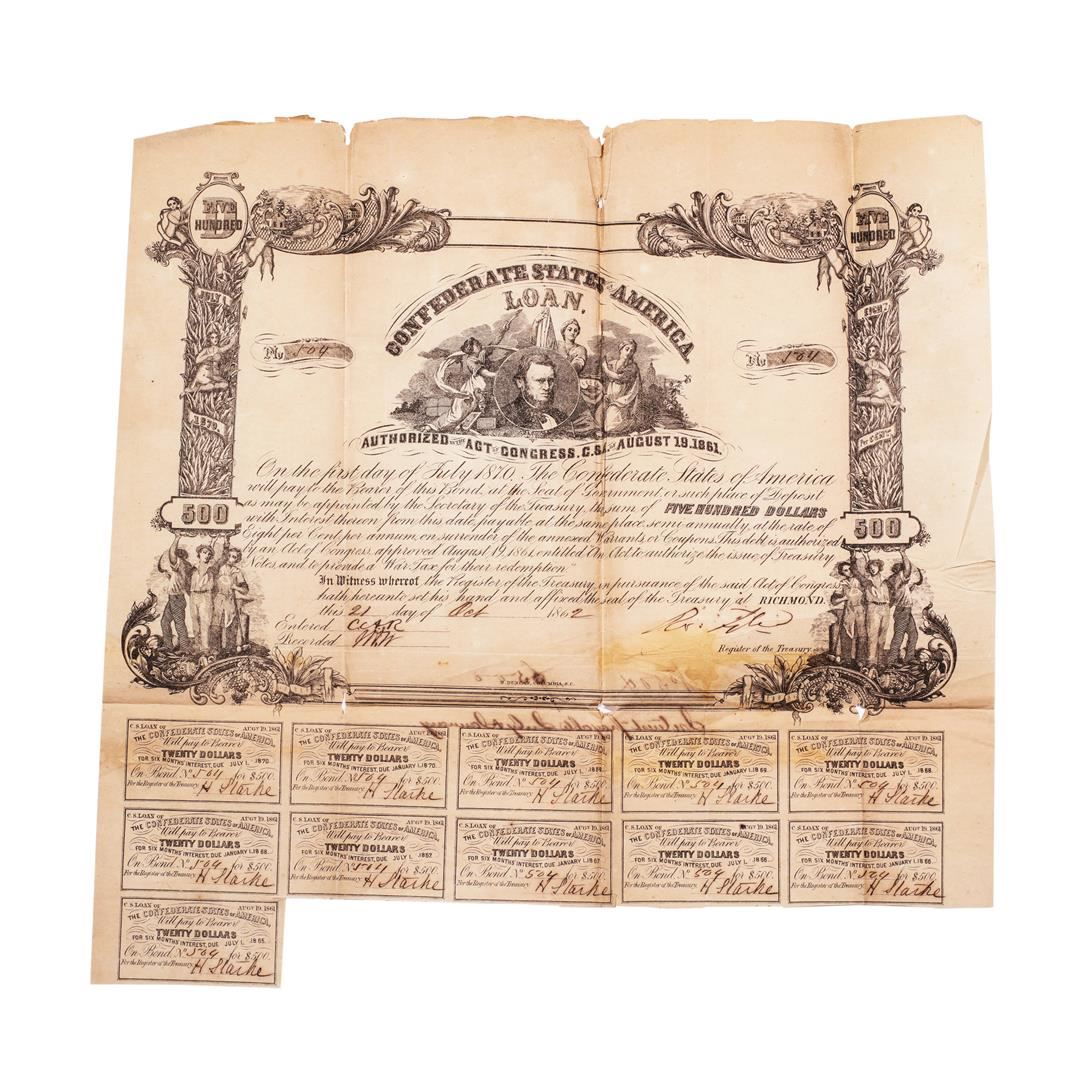 FIVE HUNDRED
FIVE HUNDRED
CONFEDERATE STATES AMERICA
LOAN.
JULY 1
EIGHT
No 504
No 504
1870.
Per CENT
AUTHORIZED BY THE ACT OF CONGRESS. C.S.A. OF AUGUST 19. 1861.
On the first day of July 1870, The Confederate States of America
will pay to the Bearer of this Bond, at the Seat of Government, or such place of Deposit
as may be appointed by the Secretary of the Treasury, the sum of FIVE HUNDRED DOLLARS
500
500
with Interest thereon from this date, payable at the same place semi-annually, at the rate of
Eight per Cent per annum, on surrender of the annexed Warrants, or Coupons. This debt is authorized
by an Act of Congress, approved August 19, 1861, entitled "An Act to authorize the issue of Treasury
Notes, and to provide a War Tax for their redemption."
In Witness whereof, the Register of the Treasury, in pursuance of the said Act of Congress
hath hereunto set his hand and affixed the seal of the Treasury at RICHMOND.
this 21 day of Oct 1862
Entered
Recorded
Register of the Treasury.
COLUMBIA, S.C.
C.S. LOAN OF AUGT 19, 1861
THE CONFEDERATE STATES OF AMERICA,
Will pay to Bearer
TWENTY DOLLARS
FOR SIX MONTHS INTEREST, DUE JULY 1, 1870.
On Bond, No 504 for $500.
For the Register of the Treasury, H Starke
C.S. LOAN OF AUGT 19, 1861
THE CONFEDERATE STATES OF AMERICA,
Will pay to Bearer
TWENTY DOLLARS
FOR SIX MONTHS INTEREST, DUE JANUARY 1, 1870.
On Bond, No 504 for $500.
For the Register of the Treasury, H Starke
C.S. LOAN OF AUGT 19, 1861
THE CONFEDERATE STATES OF AMERICA,
Will pay to Bearer
TWENTY DOLLARS
FOR SIX MONTHS INTEREST, DUE JULY 1, 1869.
On Bond, No 504 for $500.
For the Register of the Treasury, H Starke
C.S. LOAN OF AUGT 19, 1861
THE CONFEDERATE STATES OF AMERICA,
Will pay to Bearer
TWENTY DOLLARS
FOR SIX MONTHS INTEREST, DUE JANUARY 1, 1869.
On Bond, No 504 for $500.
For the Register of the Treasury, H Starke
C.S. LOAN OF AUGT 19, 1861
THE CONFEDERATE STATES OF AMERICA,
Will pay to Bearer
TWENTY DOLLARS
FOR SIX MONTHS INTEREST, DUE JULY 1, 1868.
On Bond, No 504 for $500.
For the Register of the Treasury, H Starke
C.S. LOAN OF AUGT 19, 1861
THE CONFEDERATE STATES OF AMERICA,
Will pay to Bearer
TWENTY DOLLARS
FOR SIX MONTHS INTEREST, DUE JANUARY 1, 1868.
On Bond, No 504 for $500.
For the Register of the Treasury, H Starke
C.S. LOAN OF AUGT 19, 1861
THE CONFEDERATE STATES OF AMERICA,
Will pay to Bearer
TWENTY DOLLARS
FOR SIX MONTHS INTEREST, DUE JULY 1, 1867.
On Bond, No 504 for $500.
For the Register of the Treasury, H Starke
C.S. LOAN OF AUGT 19, 1861
THE CONFEDERATE STATES OF AMERICA,
Will pay to Bearer
TWENTY DOLLARS
FOR SIX MONTHS INTEREST, DUE JANUARY 1, 1867.
On Bond, No 504 for $500.
For the Register of the Treasury, H Starke
C.S. LOAN OF AUGT 19, 1861
THE CONFEDERATE STATES OF AMERICA,
Will pay to Bearer
TWENTY DOLLARS
FOR SIX MONTHS INTEREST, DUE JULY 1, 1866.
On Bond, No 504 for $500.
For the Register of the Treasury, H Starke
C.S. LOAN OF AUGT 19, 1861
THE CONFEDERATE STATES OF AMERICA,
Will pay to Bearer
TWENTY DOLLARS
FOR SIX MONTHS INTEREST, DUE JANUARY 1, 1866.
On Bond, No 504 for $500.
For the Register of the Treasury, H Starke
C.S. LOAN OF AUGT 19, 1861
THE CONFEDERATE STATES OF AMERICA,
Will pay to Bearer
TWENTY DOLLARS
FOR SIX MONTHS INTEREST, DUE JULY 1, 1865.
On Bond, No 504 for $500.
For the Register of the Treasury, H Starke